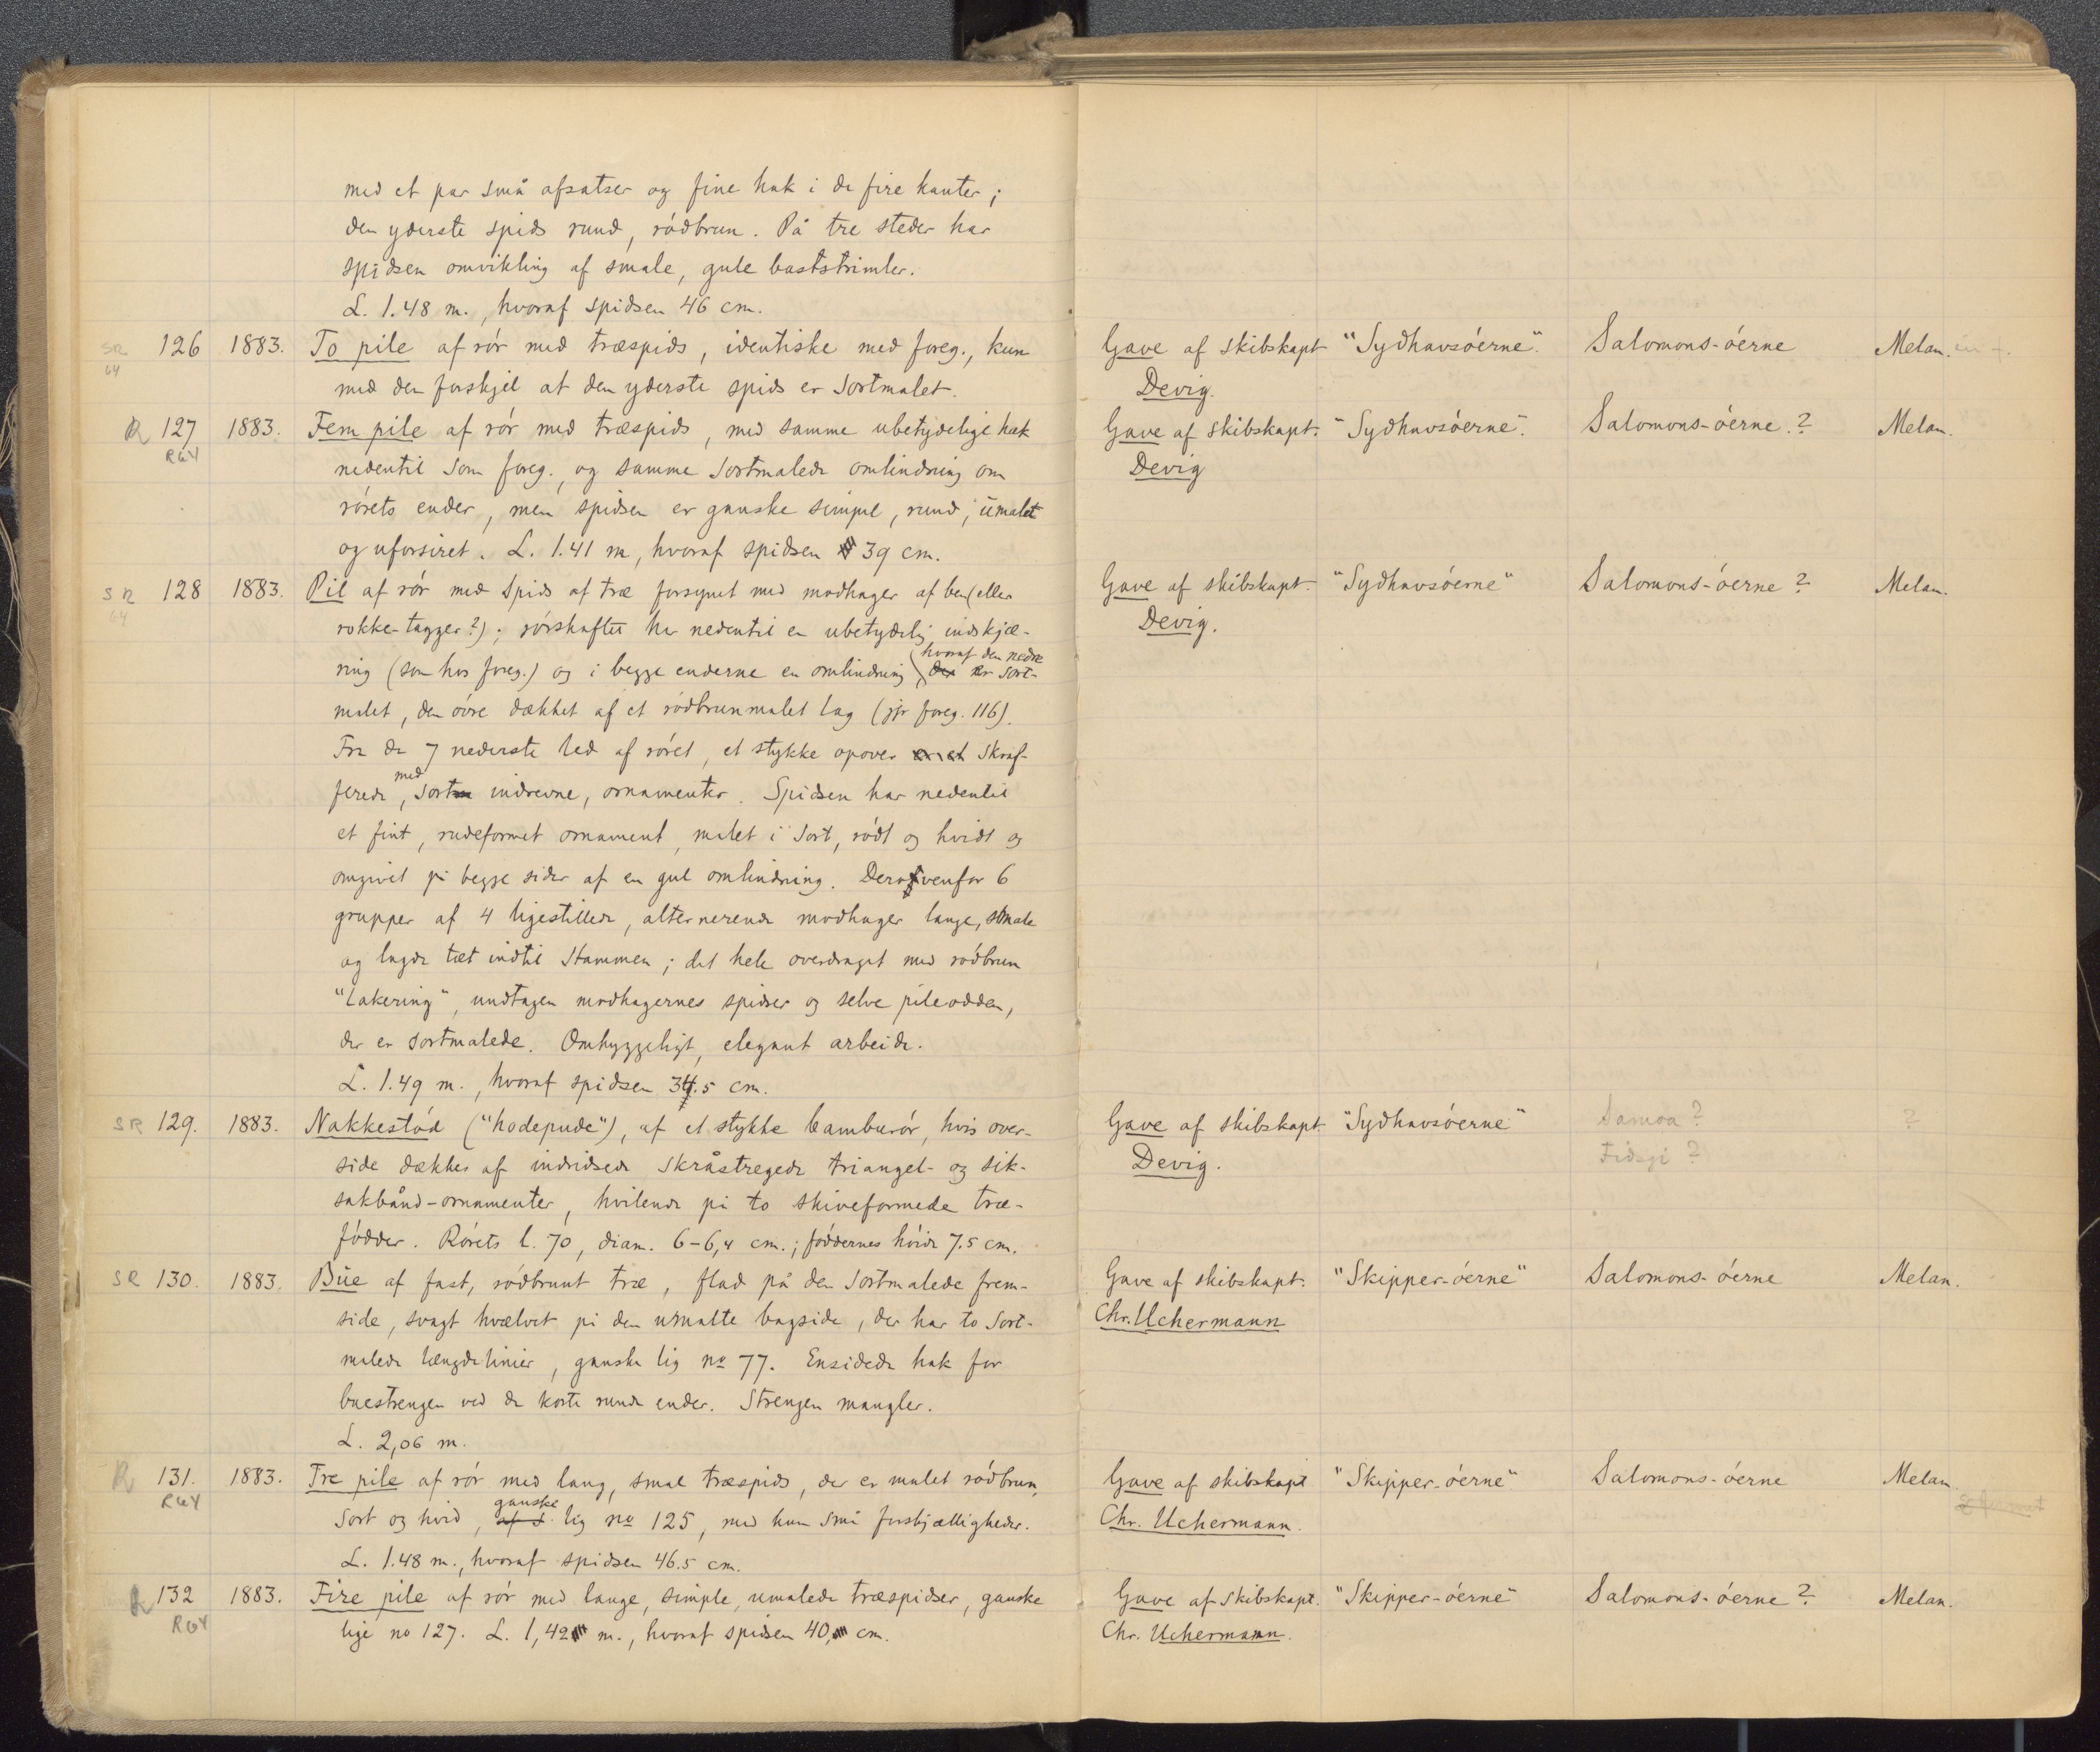 med et par små afsatser og fine hak i de fire kanter;
den yderste spids rund, rødbrun. På tre steder har
spidsen omvikling af smale, gule baststrimler.
L. 1.48 m., hvoraf spidsen 46 cm.
SR 64 126 1883. To pile af rør med træspids, identiske med foreg., kun Gave af skibskapt "Sydhavsøerne". Salomons-øerne Melan.
med den forskjel at den yderste spids er sortmalet. Devig.
R 127 1883. Fem pile af rør med træspids, med samme ubetydelige hak Gave af skibskapt. "Sydhavsøerne". Salomons-øerne.? Melan.
R64 nedentil som foreg., og samme sortmalede omlindring om Devig
rørets ender, men spidsen er ganske simpel, rund, umalet
og uforsiret. L. 1.41 m, hvoraf spidsen 39 cm.
SR 64 128 1883. Pil af rør med spids af træ forsynet med modhager af ben (eller Gave af skibskapt. "Sydhavsøerne" Salomons-øerne? Melan.
rokke-tagger?); rørskaftet har nedentil en ubetydelig indskjæ- Devig.
ring (som hos foreg.) og i begge enderne en omlindring, hvoraf den nedre der er sort-
malet, den øvre dækket af et rødbrunmalet lag (jfr foreg. 116).
Fra de 7 nederste led af røret, et stykke opover er et skraf-
ferede, med sorte indrevne, ornamenter. Spidsen har nedentil
et fint, rudeformet ornament, malet i sort, rødt og hvidt og
omgivet på begge sider af en gul omlindring. Derovenfor 6
grupper af 4 ligestillede, alternerende modhager lange, smale
og lagde tæt indtil stammen; det hele overdraget med rødbrun
"lakering", undtagen modhagernes spidser og selve pileodden,
der er sortmalede. Omhyggeligt, elegant arbeide.
L. 1.49 m., hvoraf spidsen 34.5 cm.
SR 129. 1883. Nakkestød ("hodepude"), af et stykke bambusrør, hvis over- Gave af skibskapt. "Sydhavsøerne" Samoa? ?
side dækkes af indridsede skråstregede triangel- og sik- Devig. Fidsji?
sakbånd-ornamenter, hvilende på to skiveformede træ-
fødder. Rørets l. 70, diam. 6-6,4 cm.; føddernes høide 7.5 cm.
SR 130. 1883. Bue af fast, rødbrunt træ, flad på den sortmalede frem- Gave af skibskapt. "Skipper-øerne" Salomons-øerne Melan.
side, svagt hvælvet på den umalte bagside, der har to sort- Chr. Uchermann
malede længdelinier, ganske lig no 77. Ensidede hak for
buestrengen ved de korte runde ender. Strengen mangler.
L. 2,06 m.
R 131. 1883. Tre pile af rør med lang, smal træspids, der er malet rødbrun, Gave af skibskapt "Skipper-øerne" Salomons-øerne Melan.
R64 sort og hvid, ganske lig no 125, med kun små forskjælligheder. Chr. Uchermann.
L. 1.48 m., hvoraf spidsen 46.5 cm.
R 132 1883. Fire pile af rør med lange, simple, umalede træspidser, ganske Gave af skibskapt. "Skipper-øerne" Salomons-øerne? Melan.
R64 lige no 127. L. 1,42 m., hvoraf spidsen 40, cm. Chr. Uchermann.